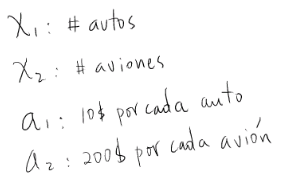 x₁: # autos
x₂: # aviones
a₁: 10$ por cada auto
a₂: 200$ por cada avión